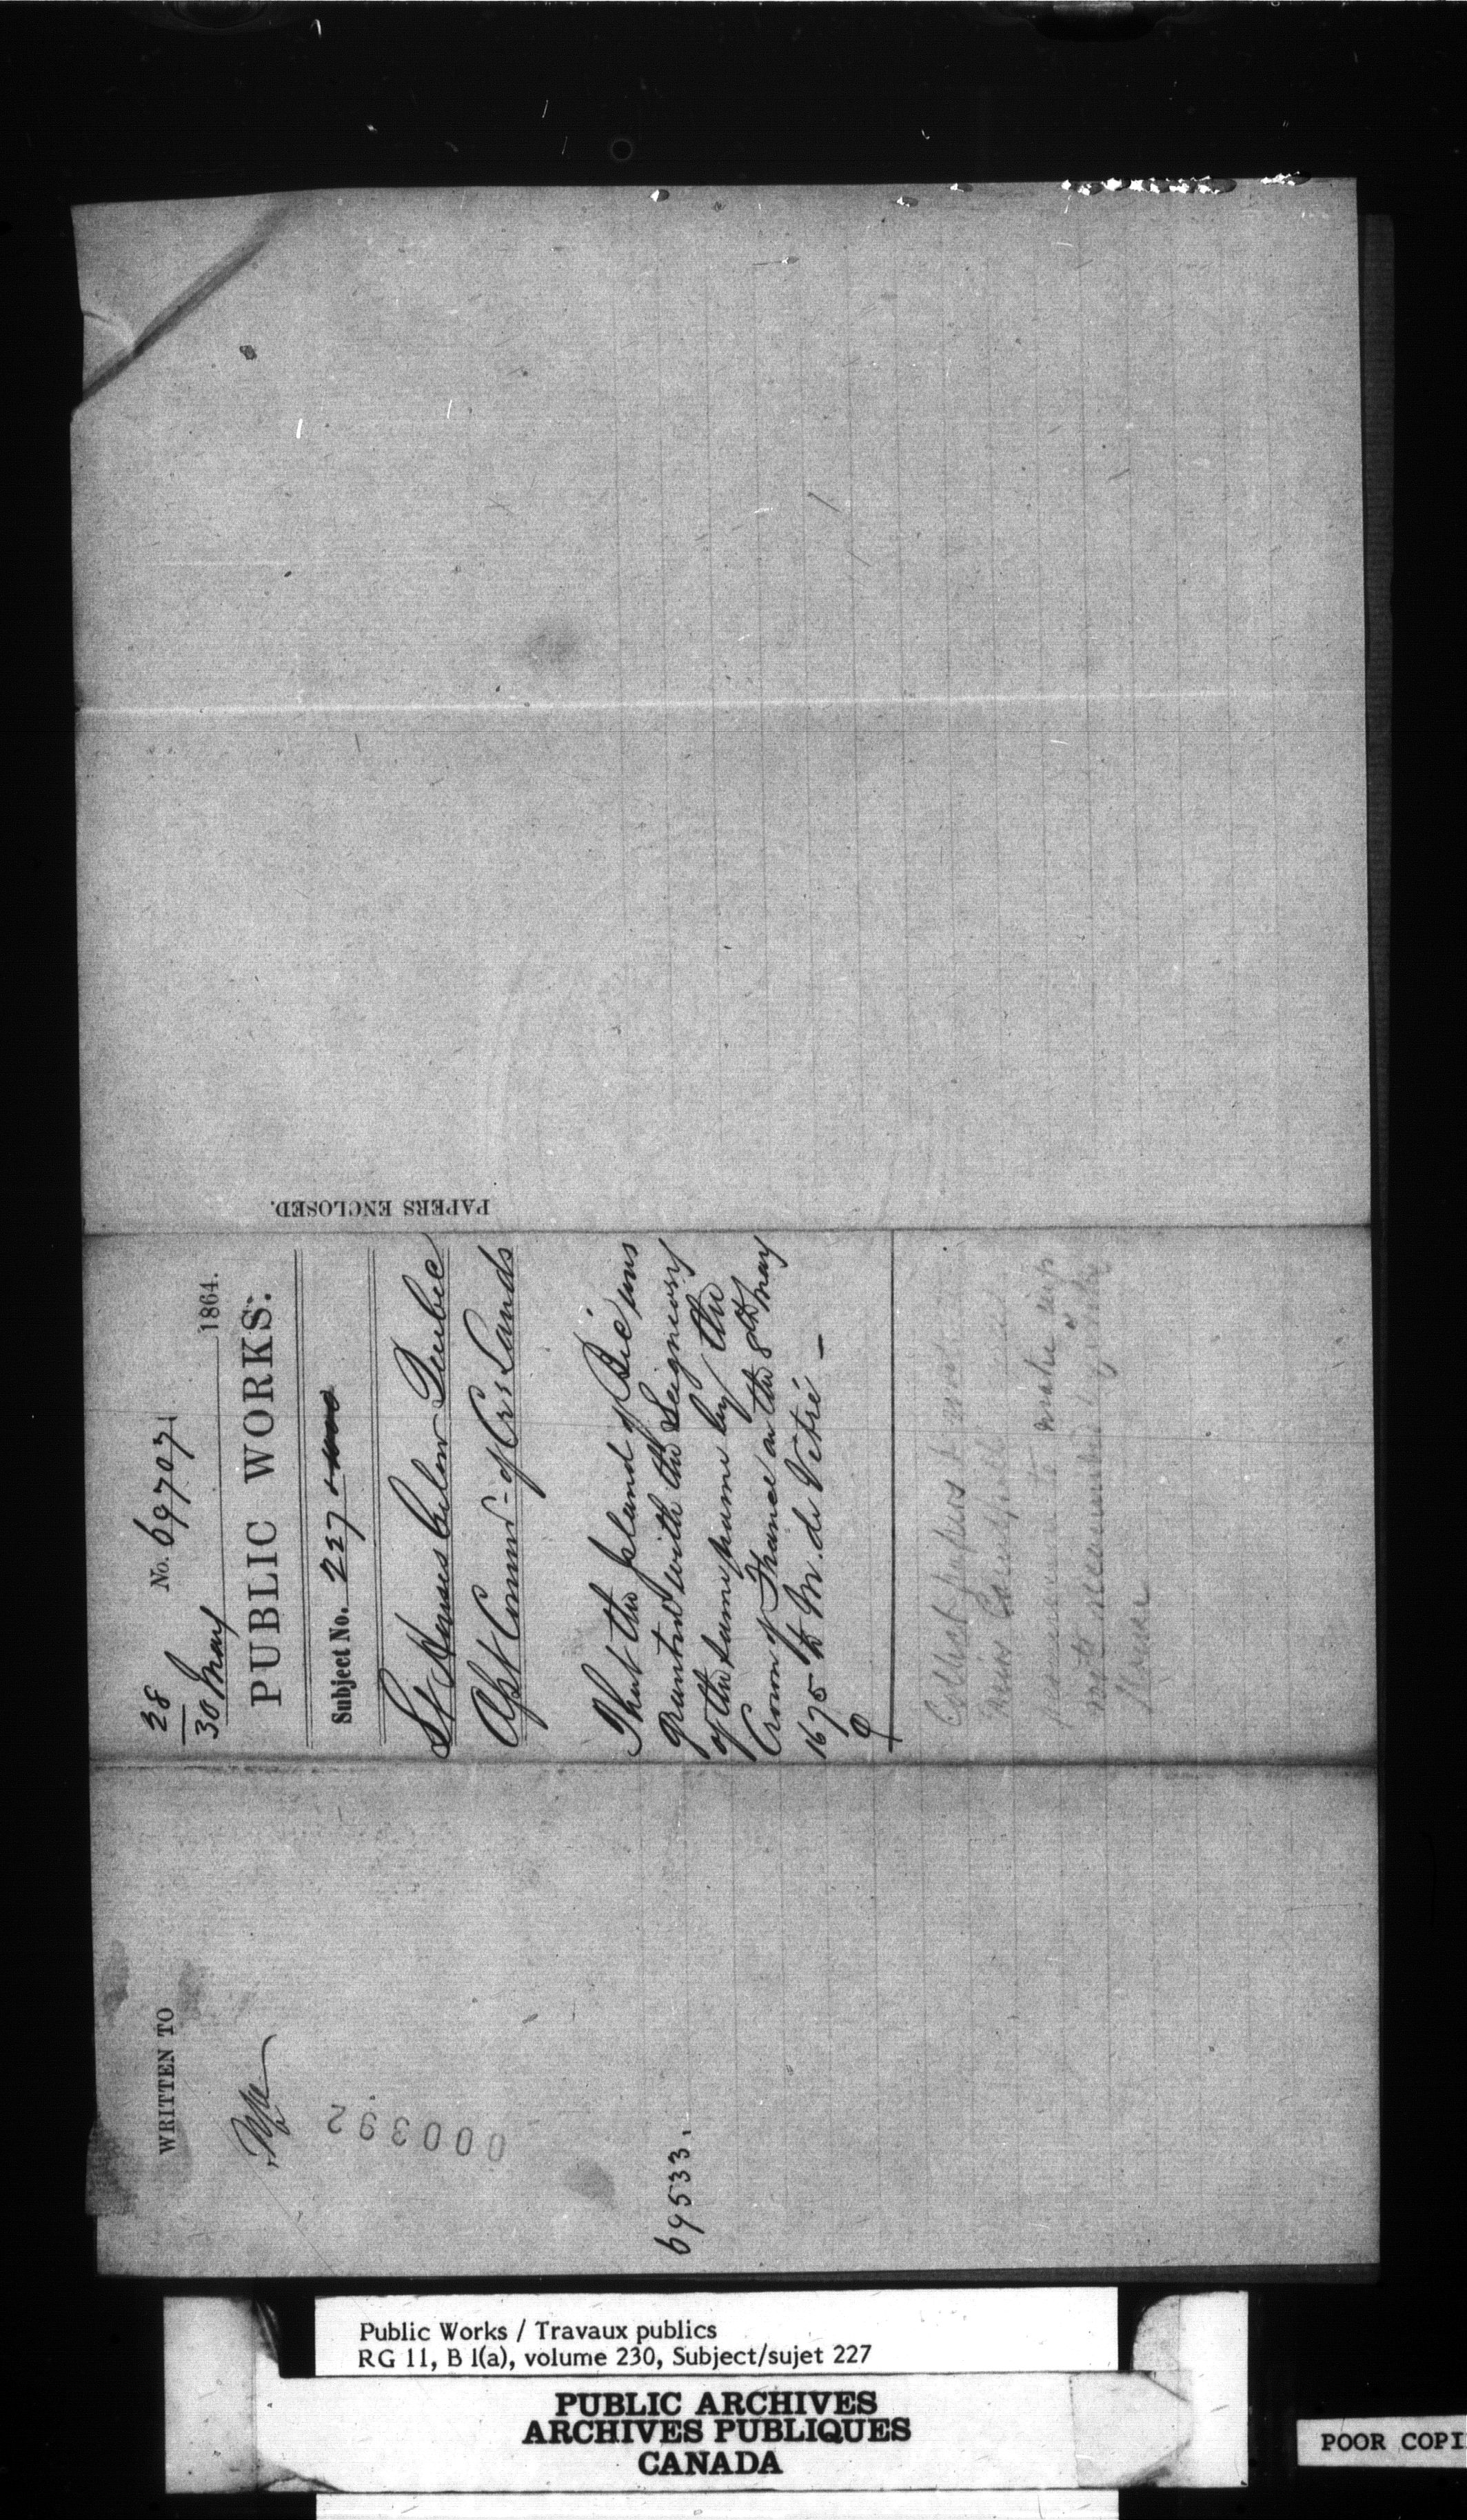 28
30 May
No. 69707
1864.
PUBLIC WORKS.
Subject No. 227
Lt Houses below Quebec
Asst Commr of Crn Lands
That the Island of Bic was
granted with the Seigniory
of the same name by the
Crown of France on the 8th May
1675 to M. de Vitré —
Collect papers
make up
House
PAPERS ENCLOSED.
WRITTEN TO
000392
69533.
Public Works / Travaux publics
RG 11, B 1(a), volume 230, Subject/sujet 227
PUBLIC ARCHIVES
ARCHIVES PUBLIQUES
CANADA
POOR COPI